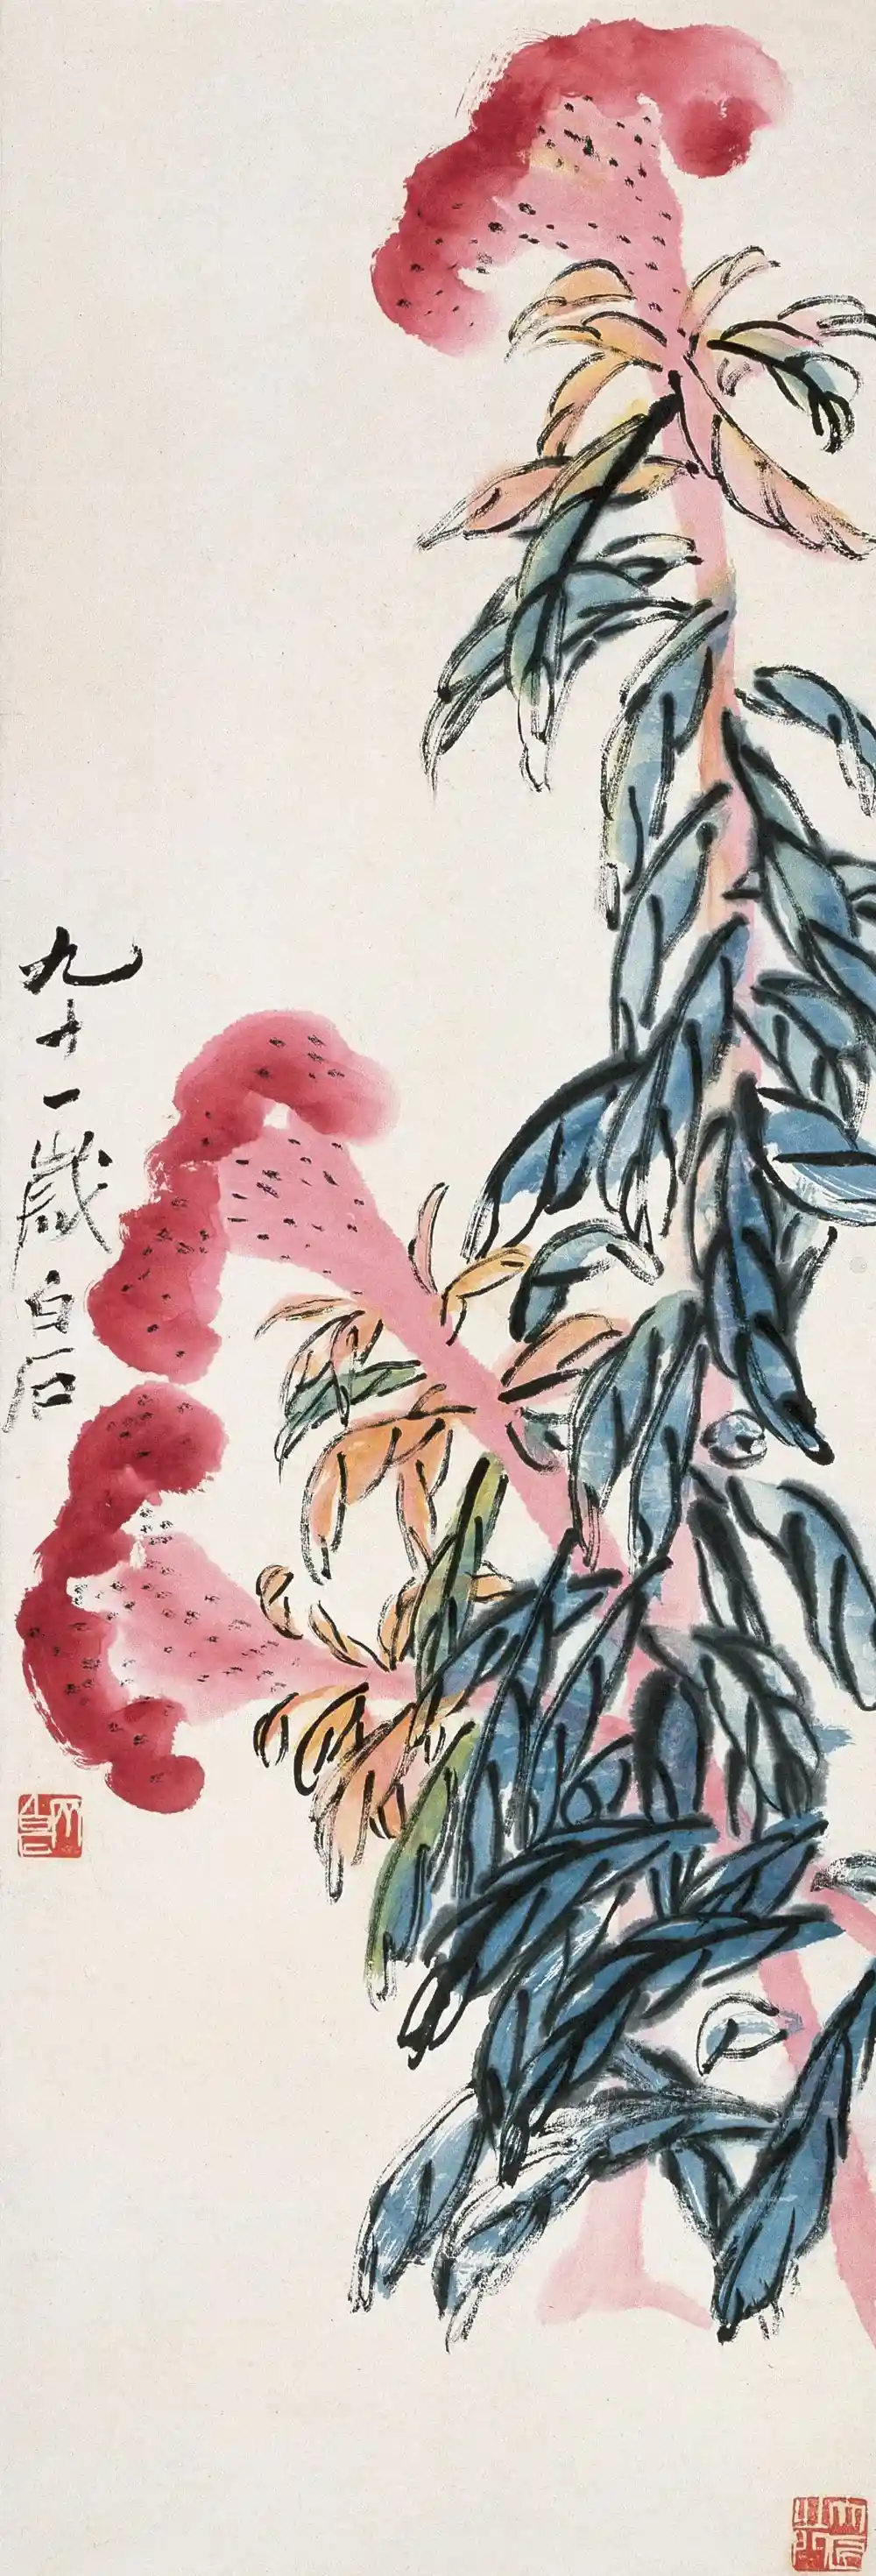 九十一岁白石